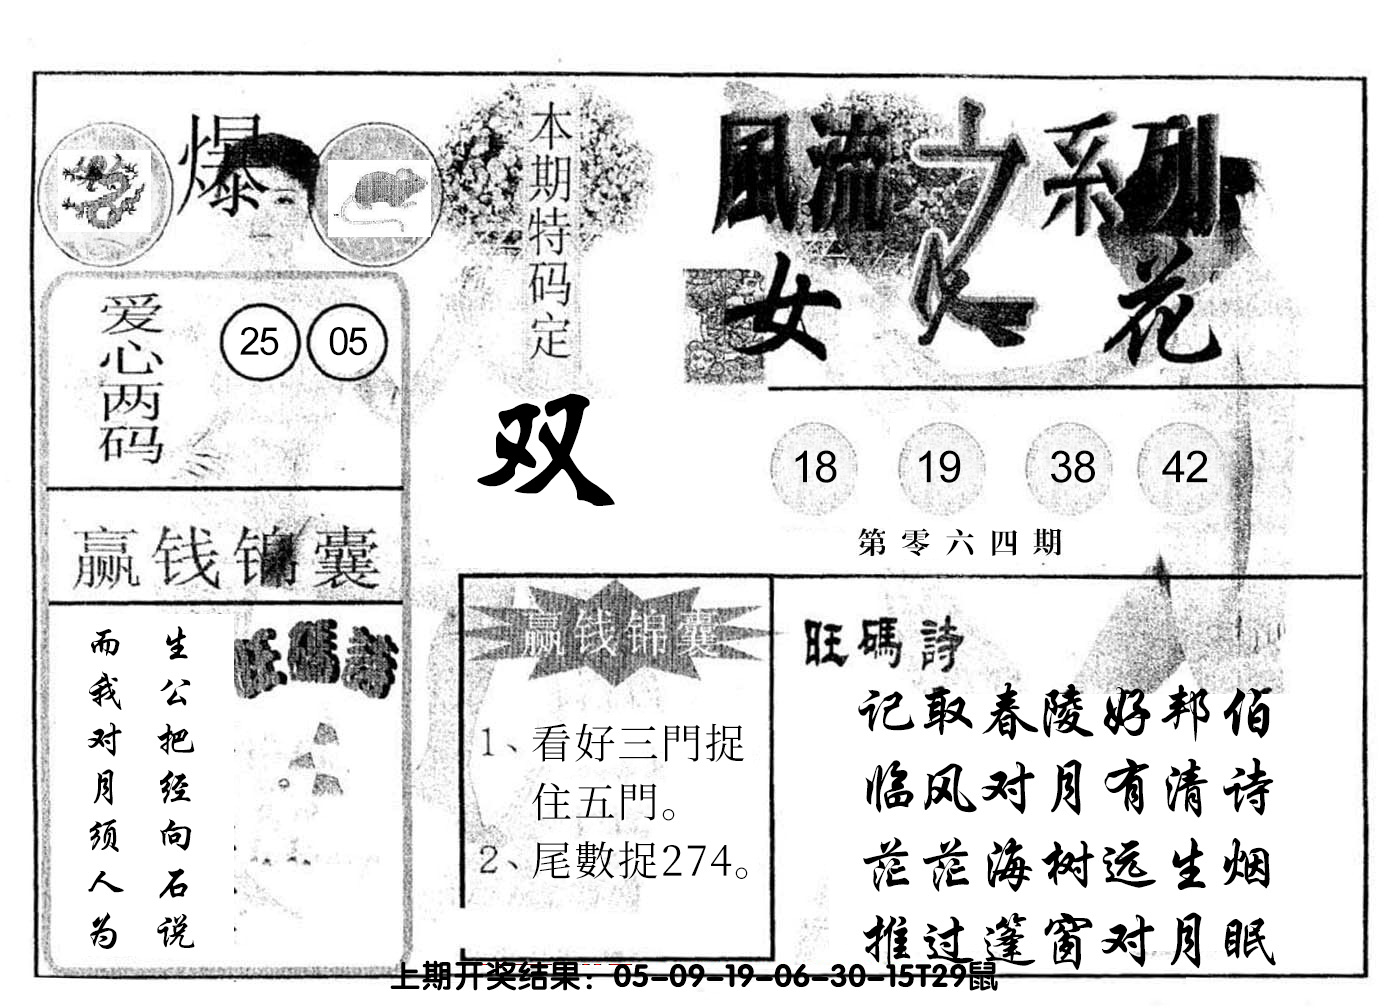 爆
本期特码定
双
風流之系列
女人花
爱心两码
25 05
18 19 38 42
第零六四期
赢钱锦囊
生公把经向石说
而我对月须人为
旺碼詩
赢钱锦囊
1、看好三門捉
住五門。
2、尾數捉274。
旺碼詩
记取春陵好邦伯
临风对月有清诗
茫茫海树远生烟
推过篷窗对月眠
上期开奖结果：05-09-19-06-30-15T29鼠